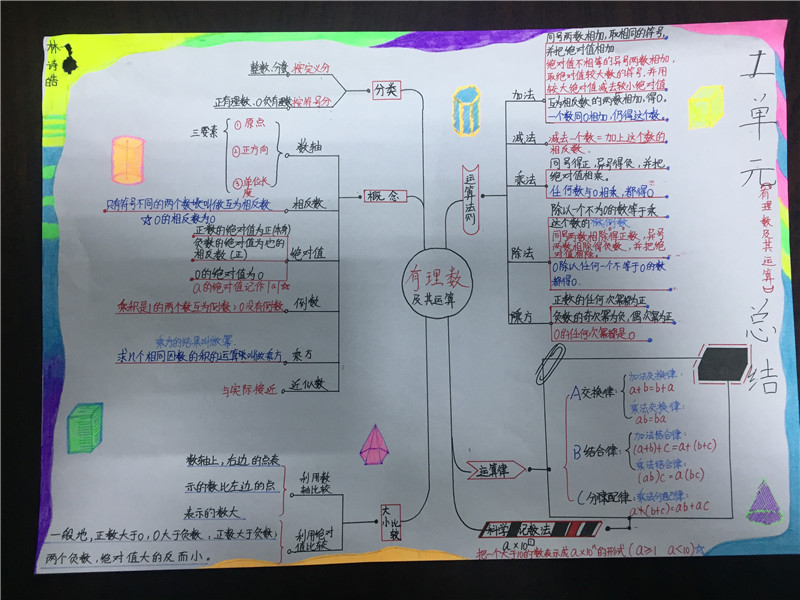 林诗皓
工单元
【有理数及其运算】
总结
有理数
及其运算
分类
整数、分数 按定义分
正有理数、0负有理数 按符号分
概念
数轴
三要素
①原点
②正方向
③单位长度
相反数
只有符号不同的两个数叫做互为相反数
☆0的相反数为0
绝对值
正数的绝对值为正(本身)
负数的绝对值为它的
相反数(正)
0的绝对值为0
a的绝对值记作|a|☆
倒数
乘积是1的两个数互为倒数;0没有倒数
乘方
乘方的结果叫做幂
求n个相同因数的积的运算叫做乘方
近似数
与实际接近
大小比较
利用数
轴比较
数轴上,右边的点表
示的数比左边的点
表示的数大
利用绝对
值比较
一般地,正数大于0,0大于负数,正数大于负数;
两个负数,绝对值大的反而小。
运算法则
加法
同号两数相加,取相同的符号,
并把绝对值相加
绝对值不相等的异号两数相加,
取绝对值较大数的符号,并用
较大绝对值减去较小绝对值
互为相反数的两数相加,得0.
一个数同0相加,仍得这个数。
减法
减去一个数=加上这个数的
相反数.
乘法
同号得正,异号得负,并把
绝对值相乘。
任何数与0相乘,都得0
除法
除以一个不为0的数等于乘
这个数的倒数
同号两数相除得正数,异号
两数相除得负数,并把绝
对值相除。
0除以任何一个不等于0的数
都得0.
乘方
正数的任何次幂都为正
负数的奇次幂为负,偶次幂为正
0的任何次幂都是0
运算律
A交换律:
加法交换律:
a+b=b+a
乘法交换律:
ab=ba
B结合律:
加法结合律:
(a+b)+c=a+(b+c)
乘法结合律:
(ab)c=a(bc)
C分配律:
乘法分配律:
a×(b+c)=ab+ac
科学记数法
a×10ⁿ
把一个大于10的数表示成a×10ⁿ的形式(a≥1 a<10)☆